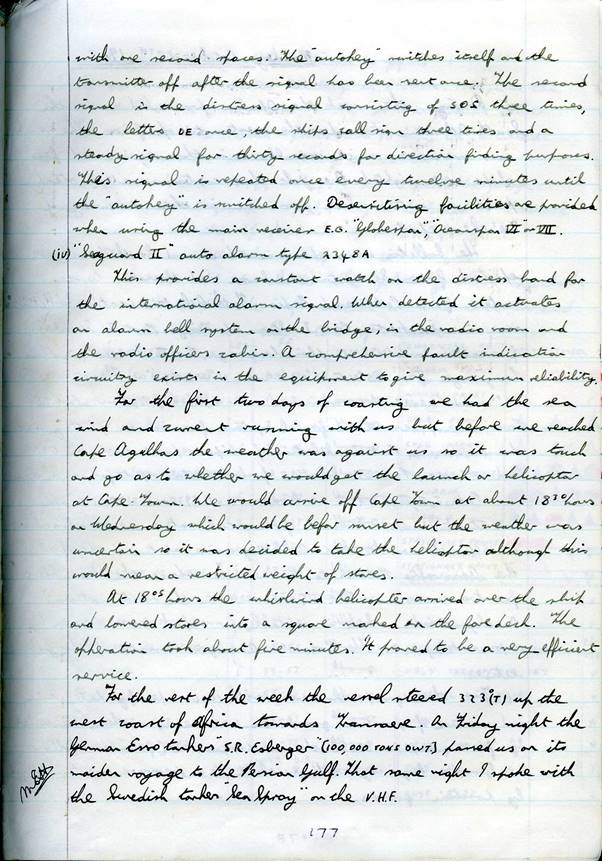 with one second spaces. The "autokey" switches itself and the
transmitter off after the signal has been sent once. The second
signal is the distress signal consisting of SOS three times,
the letters DE once, the ships call sign three times and a
steady signal for thirty seconds for direction finding purposes.
This signal is repeated once every twelve minutes until
the "autokey" is switched off. Desensitising facilities are provided
when using the main receiver E.G. "Globespan", "Oceanspan VI" or VII.
(iv) "Seaguard II" auto alarm type 2348A
This provides a constant watch on the distress band for
the international alarm signal. When detected it actuates
an alarm bell system on the bridge, in the radio room and
the radio officers cabin. A comprehensive fault indication
circuitry exists in the equipment to give maximum reliability.
For the first two days of coasting we had the sea
wind and current running with us but before we reached
Cape Agulhas the weather was against us so it was touch
and go as to whether we would get the launch or helicoptor
at Cape Town. We would arrive off Cape Town at about 18³⁰ hours
on Wednesday which would be befor sunset but the weather was
uncertain so it was decided to take the helicoptor although this
would mean a restricted weight of stores.
At 18⁰⁵ hours the whirlwind helicoptor arrived over the ship
and lowered stores into a square marked on the foredeck. The
opperation took about five minutes. It proved to be a very efficient
service.
For the rest of the week the vessel steeed 323°(T) up the
west coast of Africa towards Tranmere. On Friday night the
German Esso tanker "S.R. Esberger" (100,000 TONS DWT) passed us on its
maiden voyage to the Persian Gulf. That same night I spoke with
the Swedish tanker "Sea Spray" on the V.H.F.
177